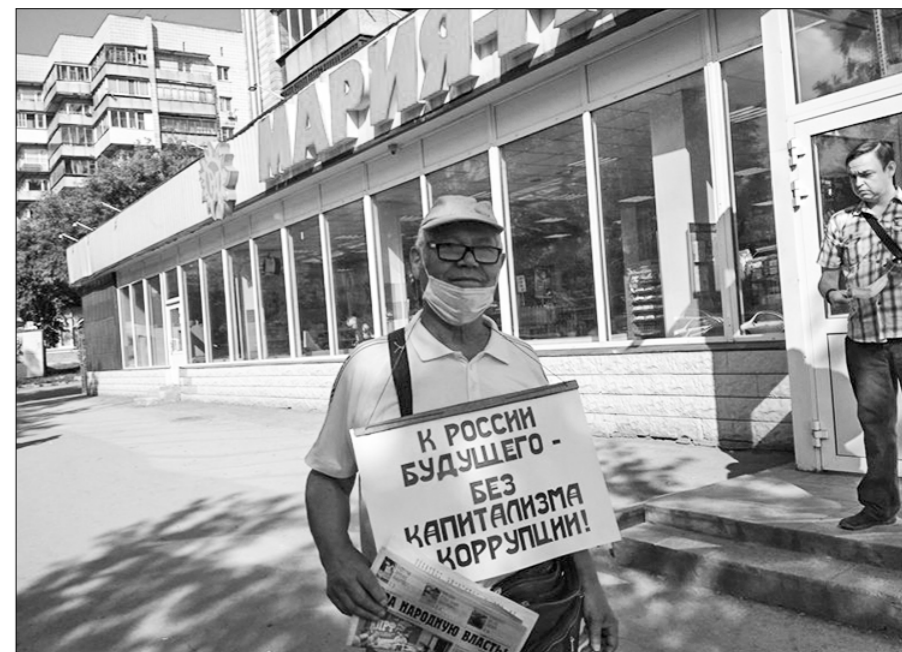 МАРИЯ-РА
К РОССИИ
БУДУЩЕГО -
БЕЗ
КАПИТАЛИЗМА
КОРРУПЦИИ!
ЗА НАРОДНУЮ ВЛАСТЬ!